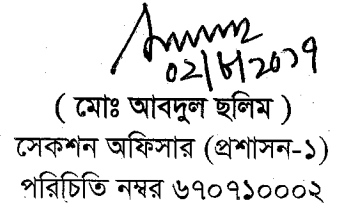 02/8/2017
( মোঃ আবদুল ছলিম )
সেকশন অফিসার (প্রশাসন-১)
পরিচিতি নম্বর ৬৭০৭১০০০২